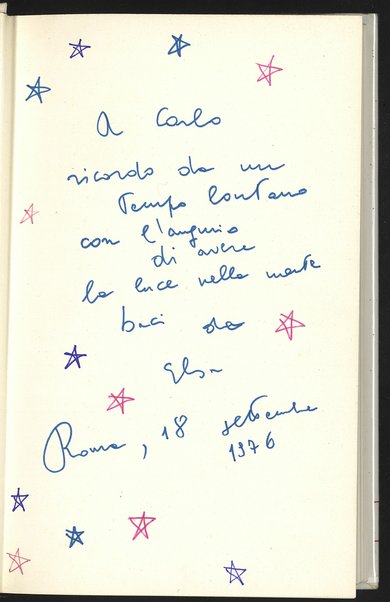 A Carlo
ricordo da un
tempo lontano
con l'augurio
di avere
la luce nella mente
baci da
Elsa
Roma, 18 settembre
1976